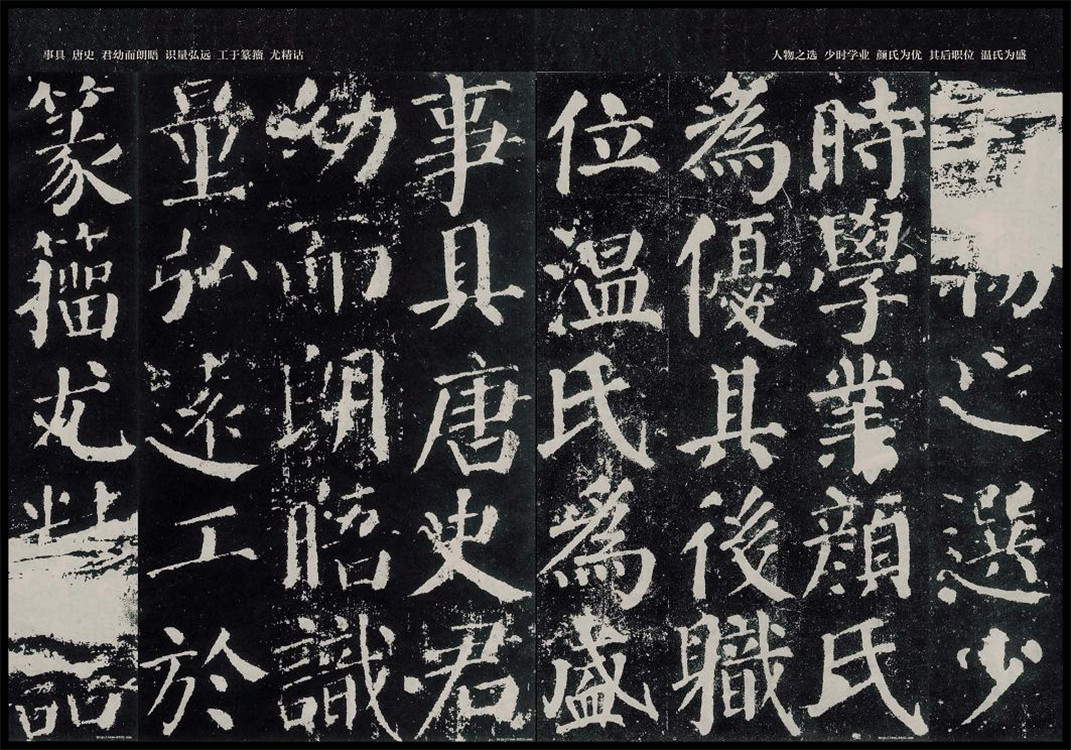 人物之选 少时学业 颜氏为优 其后职位 温氏为盛
物之選少
時學業顏氏
為優其後職
位温氏為盛
事具 唐史 君幼而朗晤 识量弘远 工于篆籀 尤精诂
事具唐史君
幼而朗晤識
量弘遠工於
篆籀尤詁